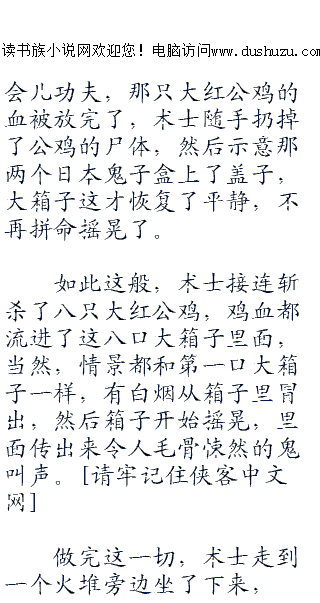 读书族小说网欢迎您！电脑访问www.dushuzu.com
会儿功夫，那只大红公鸡的
血被放完了，术士随手扔掉
了公鸡的尸体，然后示意那
两个日本鬼子盒上了盖子，
大箱子这才恢复了平静，不
再拼命摇晃了。
如此这般，术士接连斩
杀了八只大红公鸡，鸡血都
流进了这八口大箱子里面，
当然，情景都和第一口大箱
子一样，有白烟从箱子里冒
出，然后箱子开始摇晃，里
面传出来令人毛骨悚然的鬼
叫声。[请牢记住侠客中文
网]
做完这一切，术士走到
一个火堆旁边坐了下来，